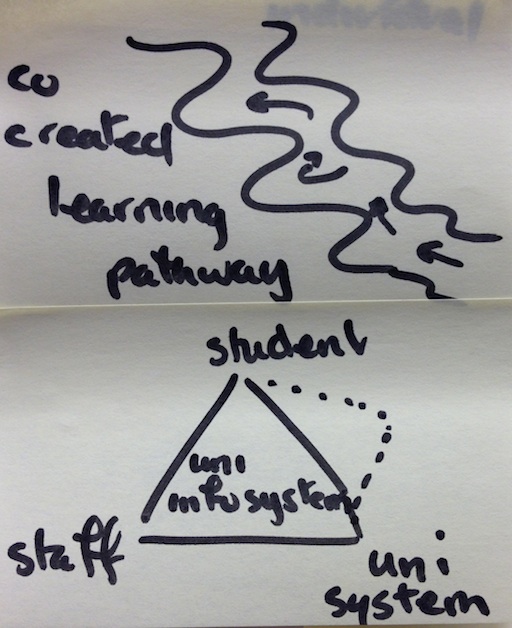 co
created
learning
pathway
student
uni
info system
staff
uni
system